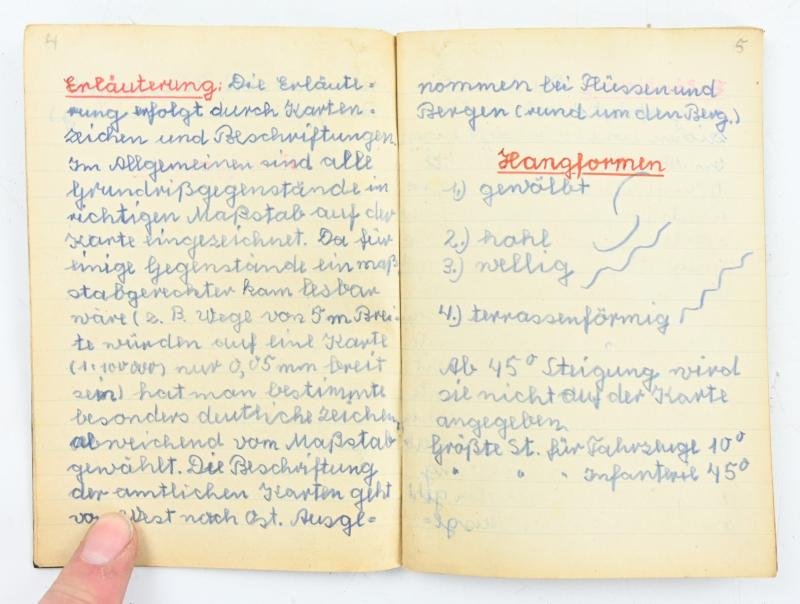 4
Erläuterung: Die Erläute-
rung erfolgt durch Karten-
zeichen und Beschriftungen.
Im Allgemeinen sind alle
Grundrißgegenstände in
richtigen Maßstab auf der
Karte eingezeichnet. Da für
einige Gegenstände ein maß
stabgerechter kam lesbar
wäre (z. B. Wege von 5 m Brei-
te würden auf eine Karte
(1:100000) nur 0,05 mm breit
sein) hat man bestimmte
besonders deutliche Zeichen,
abweichend vom Maßstab
gewählt. Die Beschriftung
der amtlichen Karten geht
von West nach Ost. Ausge-
5
nommen bei Flüssen und
Bergen (rund um den Berg.)
Hangformen
1.) gewölbt
2.) hohl
3.) wellig
4.) terrassenförmig
Ab 45° Steigung wird
sie nicht auf der Karte
angegeben
Größte St. für Fahrzeuge 10°
" " " Infanterie 45°